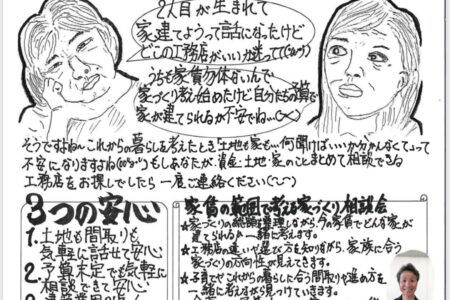 2人目が生まれて
家建てようって話になったけど
どこの工務店がいいか迷ってて
うちも家賃勿体ないんで
家づくり考え始めたけど自分たちの予算で
家が建てられるか不安でね…
そうですよね〜これからの暮らしを考えたとき土地も家も…何聞けばいいか分かんなくてよって
不安になりますよね もしあなたが資金・土地・家のことまとめて相談できる
工務店をお探しでしたら一度ご連絡ください(^-^)
3つの安心
1.土地も間取りも
気軽に話せて安心
2.予算未定でも気軽に
相談できて安心
家賃の範囲で考える家づくり相談会
★家づくりの総額を整理しながら、今の家賃でどんな家が
建てられるか一緒に考えます。
★工務店の違いや選び方を知りながら、家族に合う
家づくりの方向性が見えてきます。
★子育てやこれからの暮らしに合う間取りや進め方を
一緒に考えながら見つけていきます。